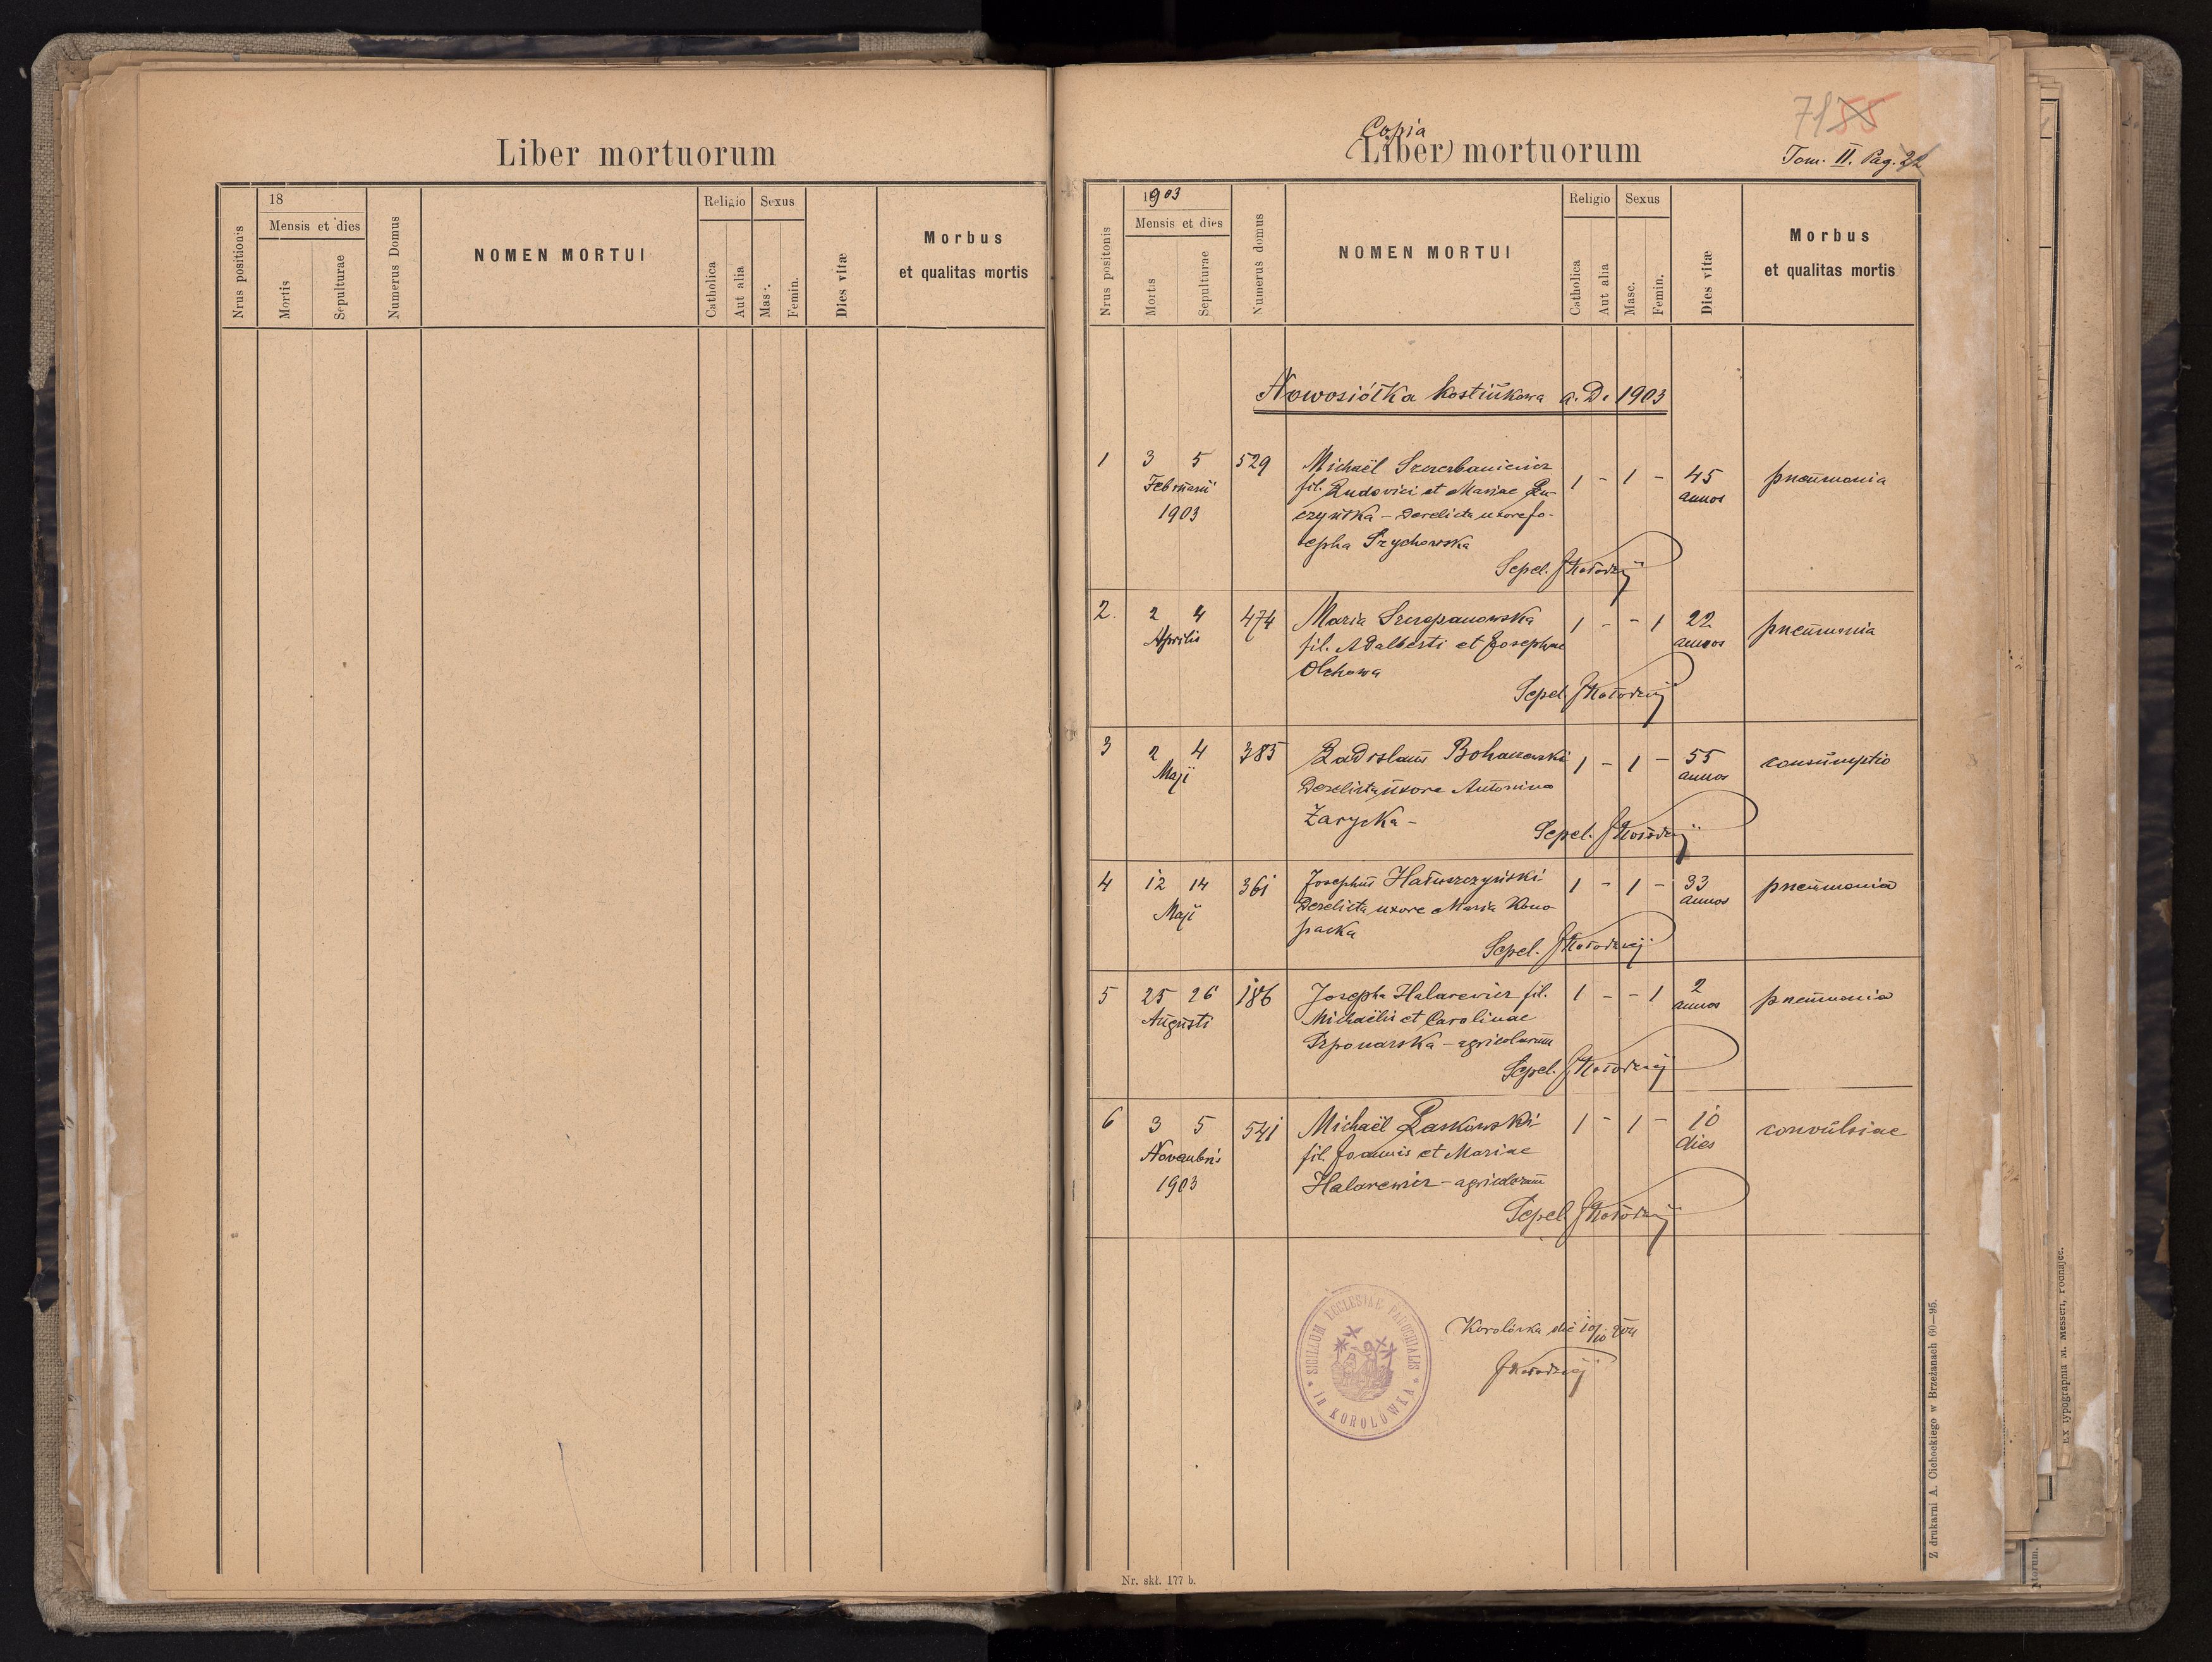 Liber mortuorum
Nrus positionis
18
Mensis et dies
Mortis
Sepulturae
Numerus Domus
NOMEN MORTUI
Religio
Catholica
Aut alia
Sexus
Masc.
Femin.
Dies vitæ
Morbus
et qualitas mortis
71 55
Copia
(Liber) mortuorum
Tom. II. Pag. 22
Nrus positonis
1903
Mensis et dies
Mortis
Sepulturae
Numerus domus
NOMEN MORTUI
Religio
Catholica
Aut alia
Sexus
Masc.
Femin.
Dies vitæ
Morbus
et qualitas mortis
Nowosiółka kostiukowa a. D. 1903
1 3 5 529 Michaël 1 - 1 - 45 pneumonia
Februarii fil. Ludovici et Mariae annos
1903 Derelicta uxore Jo-
sepha
Sepel.
2. 2 4 474 Maria Szczepanowska 1 - - 1 22 pneumonia
Aprilis fil. Adalberti et Josephae annos
Olchowa
Sepel.
3 2 4 385 Ladislaus 1 - 1 - 55 consumptio
Maji Derelicta uxore Antonina annos
Zarycka -
Sepel.
4 12 14 361 Josephus Hałuszczyński 1 - 1 - 33 pneumonia
Maji Derelicta uxore Maria Kono- annos
packa
Sepel.
5 25 26 186 Josepha Halarewicz fil. 1 - - 1 2 pneumonia
Augusti Michaëlis et Carolinae annos
- agricolarum
Sepel.
6 3 5 541 Michaël Laskowski 1 - 1 - 10 convulsiae
Novembris fil. Joannis et Mariae dies
1903 Halarewicz - agricolarum
Sepel.
SIGILLUM ECCLESIAE PAROCHIALIS
in KOROLÓWKA
Korolówka die 10/10 904
Nr. skł. 177 b.
Z drukarni A. Cichockiego w Brzeżanach 60—95.
Ex typographia M. Messeri, rodhajce.